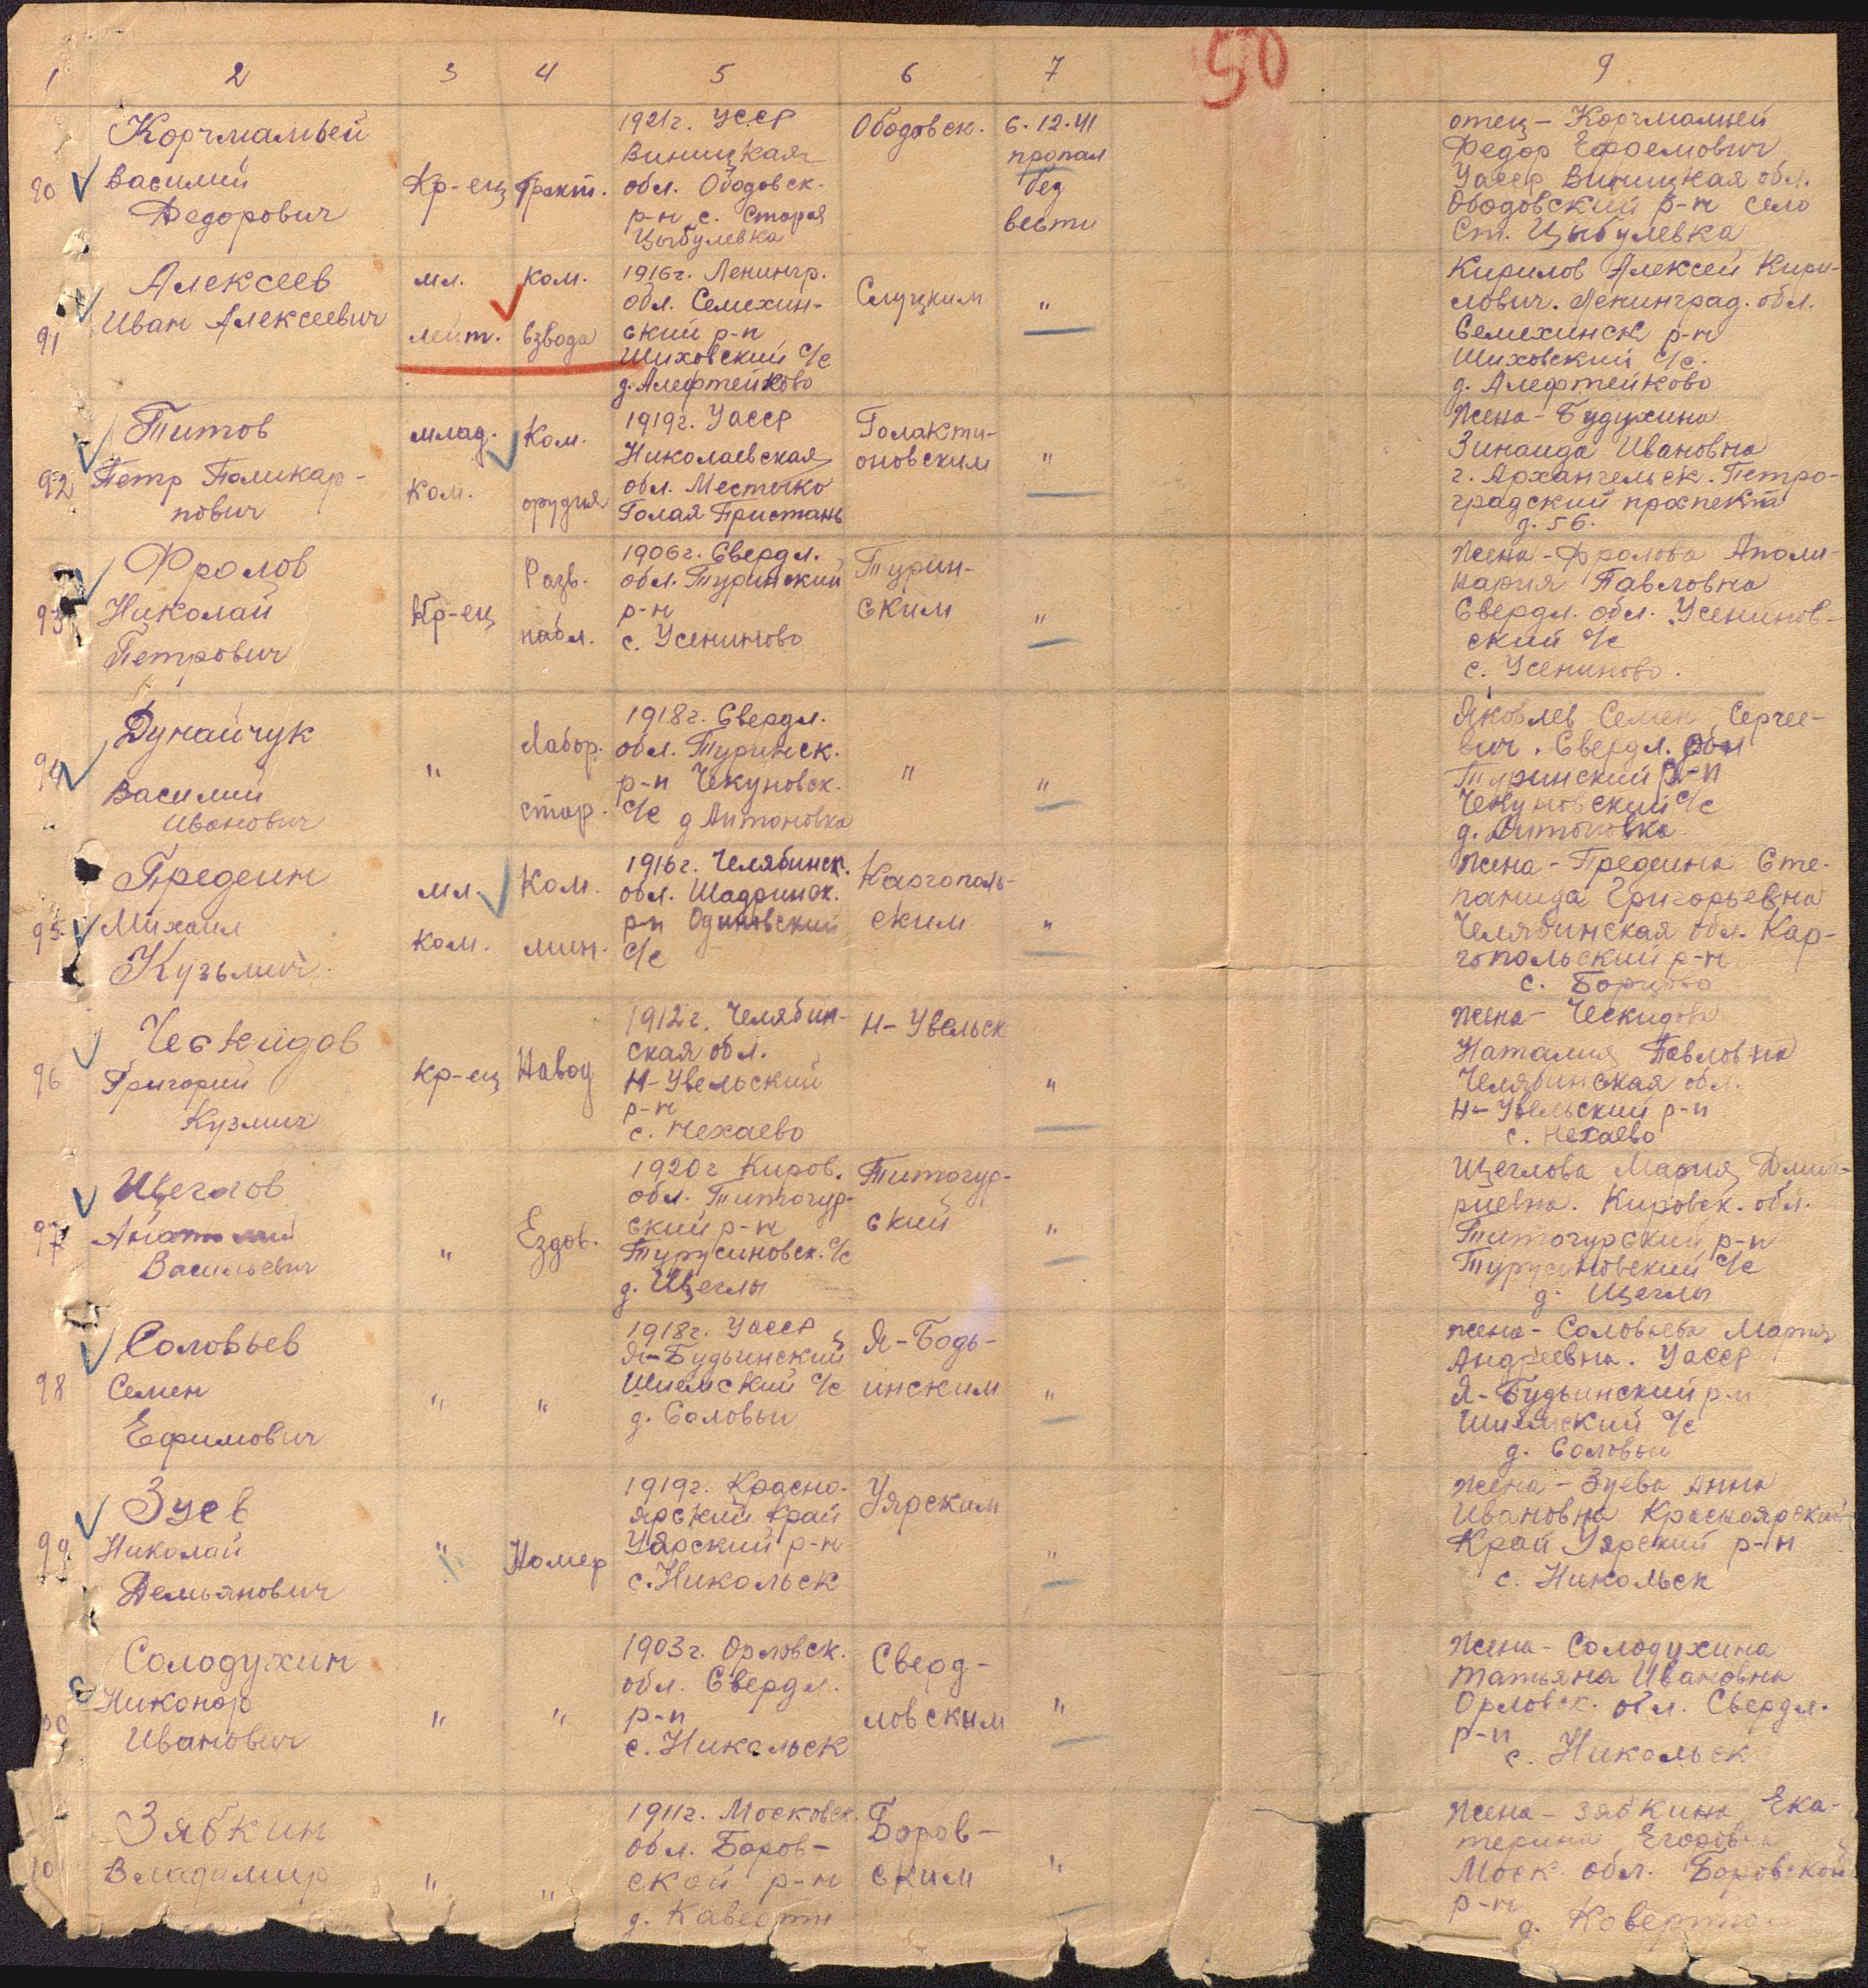 50
1 2 3 4 5 6 7 9
90
Корчмамьей
Василий
Федорович
Кр-ец
тракт.
1921г. УССР
Виницкая
обл. Ободовск.
р-н с. Старая
Цыбулевка
Ободовск.
6.12.41
пропал
без
вести
отец - Корчмамией
Федор Ефремович
УССР Виницкая обл.
Ободовский р-н село
Ст. Цыбулевка
91
Алексеев
Иван Алексеевич
мл.
лейт.
ком.
взвода
1916г. Ленингр.
обл. Семехин-
ский р-н
Шиховский с/с
д. Алефтейково
Слуцким
"
Кирилов Алексей Кири-
лович. Ленинград. обл.
Семехинск р-н
Шиховский с/с.
д. Алефтейково
92
Титов
Петр Поликар-
пович
млад.
ком.
Ком.
орудия
1919г. УССР
Николаевская
обл. Местечко
Голая Пристань
Голакти-
оновским
"
жена - Будухина
Зинаида Ивановна
г. Архангельск. Петро-
градский проспект
д. 56.
93
Фролов
Николай
Петрович
Кр-ец
Разв.
набл.
1906г. Свердл.
обл. Туринский
р-н
с. Усениново
Турин-
ским
"
жена - Фролова Аполи-
нария Павловна
Свердл. обл. Усенинов-
ский с/с
с. Усениново.
94
Дунайчук
Василий
Иванович
"
Лабор.
стар.
1918г. Свердл.
обл. Туринск.
р-н Чекуновск.
с/с д Антоновка
"
"
Яковлев Семен Серге-
вич. Свердл. обл
Туринский р-н
Чекуновский с/с
д. Антоновка
95
Предеин
Михаил
Кузьмич.
мл.
ком.
Ком.
мин.
1916г. Челябинск.
обл. Шадринск.
р-н Одиновский
с/с
Каргополь-
ским
"
жена - Предеина Сте-
панида Григорьевна
Челябинская обл. Кар-
гопольский р-н
с.
96
Ческидов
Григорий
Кузмич
Кр-ец
Навод
1912г. Челябин-
ская обл.
Н-Увельский
р-н
с. Нехаево
Н-Увельск
"
жена - Ческидова
Наталия Павловна
Челябинская обл.
Н-Увельский р-н
с. Нехаево
97
Щеглов
Анатолий
Васильевич
"
Ездов.
1920г Киров.
обл. Питочур-
ский р-н
Турусиновск. с/с
д. Щеглы
Питочур-
ский
"
Щеглова Мария Дмит-
риевна. Кировск. обл.
Питочурский р-н
Турусиновский с/с
д. Щеглы
98
Соловьев
Семен
Ефимович
"
"
1918г. УАССР
Я-Будьинский
Шиемский с/с
д. Соловьи
Я-Бодь-
инским
"
жена - Соловьева Мария
Андреевна. УАССР
Я-Будьинский р-н
Шиемский с/с
д. Соловьи
99
Зуев
Николай
Демьянович
"
Номер
1919г. Красно-
ярский край
Уярский р-н
с. Никольск
Уярским
"
жена - Зуева Анна
Ивановна Красноярский
Край Уярский р-н
с. Никольск
Солодухин
Никонор
Иванович
"
"
1903г. Орловск.
обл. Свердл.
р-н
с. Никольск
Сверд-
ловским
"
жена - Солодухина
Татьяна Ивановна
Орловск. обл. Свердл.
р-н
с. Никольск
10
Зябкин
Владимир
"
"
1911г. Московск.
обл. Боров-
ской р-н
д.
Боров-
ским
"
жена - Зябкина Ека-
терина Егоровна
Моск. обл. Боровской
р-н
д.